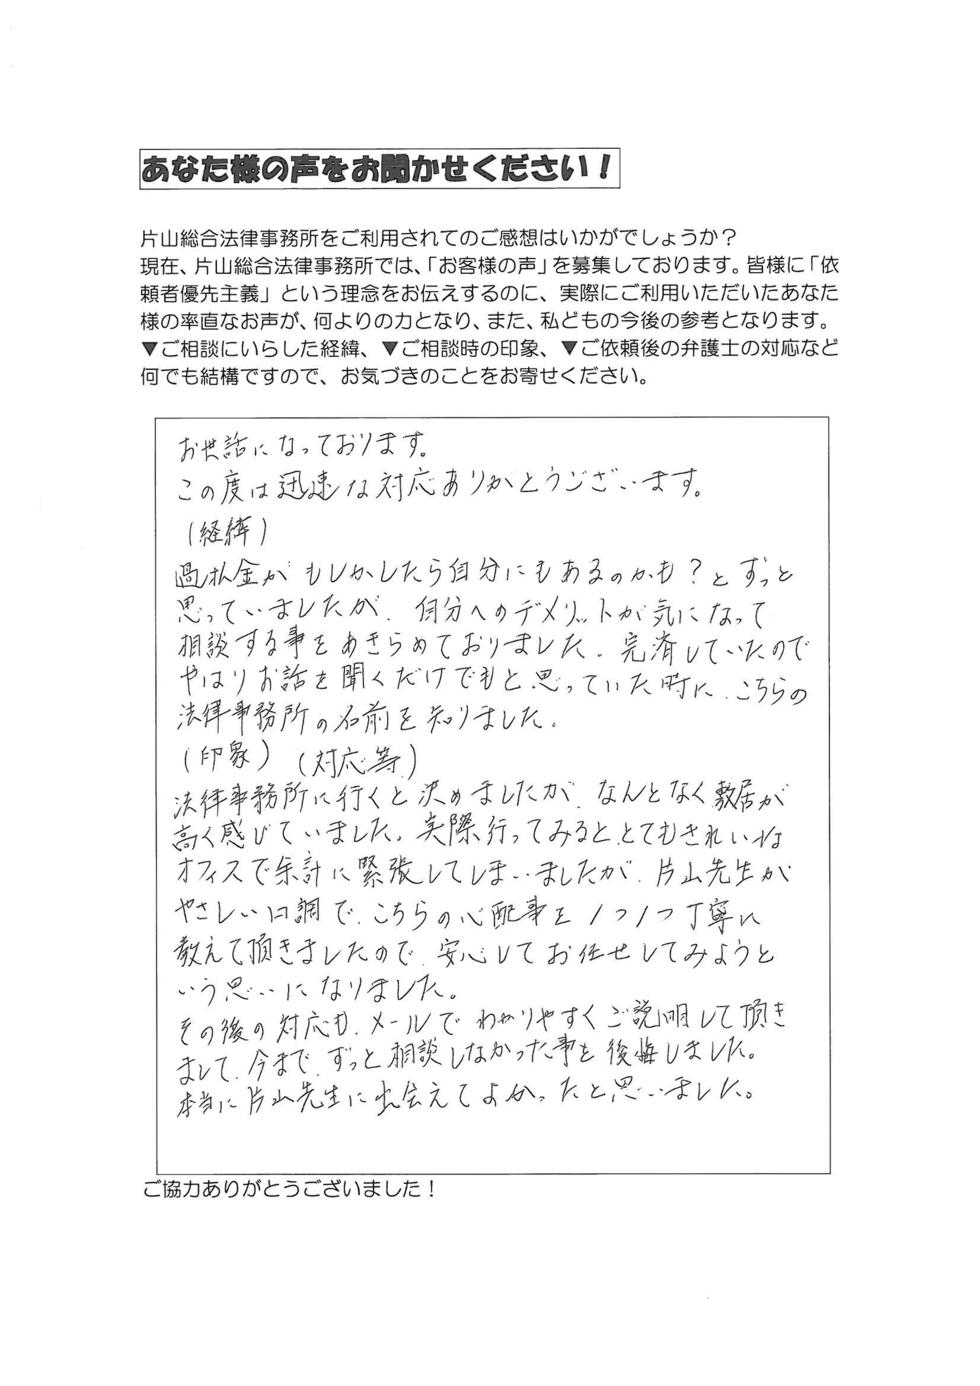 あなた様の声をお聞かせください！
片山総合法律事務所をご利用されてのご感想はいかがでしょうか？
現在、片山総合法律事務所では、「お客様の声」を募集しております。皆様に「依
頼者優先主義」という理念をお伝えするのに、実際にご利用いただいたあなた
様の率直なお声が、何よりの力となり、また、私どもの今後の参考となります。
▼ご相談にいらした経緯、▼ご相談時の印象、▼ご依頼後の弁護士の対応など
何でも結構ですので、お気づきのことをお寄せください。
お世話になっております。
この度は迅速な対応ありがとうございます。
(経緯)
過払金がもしかしたら自分にもあるのかも？とずっと
思っていましたが、自分へのデメリットが気になって
相談する事をあきらめておりました。完済していたので
やはりお話を聞くだけでもと思っていた時に、こちらの
法律事務所の名前を知りました。
(印象) (対応等)
法律事務所に行くと決めましたが、なんとなく敷居が
高く感じていました。実際行ってみると、とてもきれいな
オフィスで余計に緊張してしまいましたが、片山先生が
やさしい口調で、こちらの心配事を1つ1つ丁寧に
教えて頂きましたので、安心してお任せしてみようと
いう思いになりました。
その後の対応も、メールでわかりやすくご説明して頂き
まして、今まで、ずっと相談しなかった事を後悔しました。
本当に片山先生に出会えてよかったと思いました。
ご協力ありがとうございました！